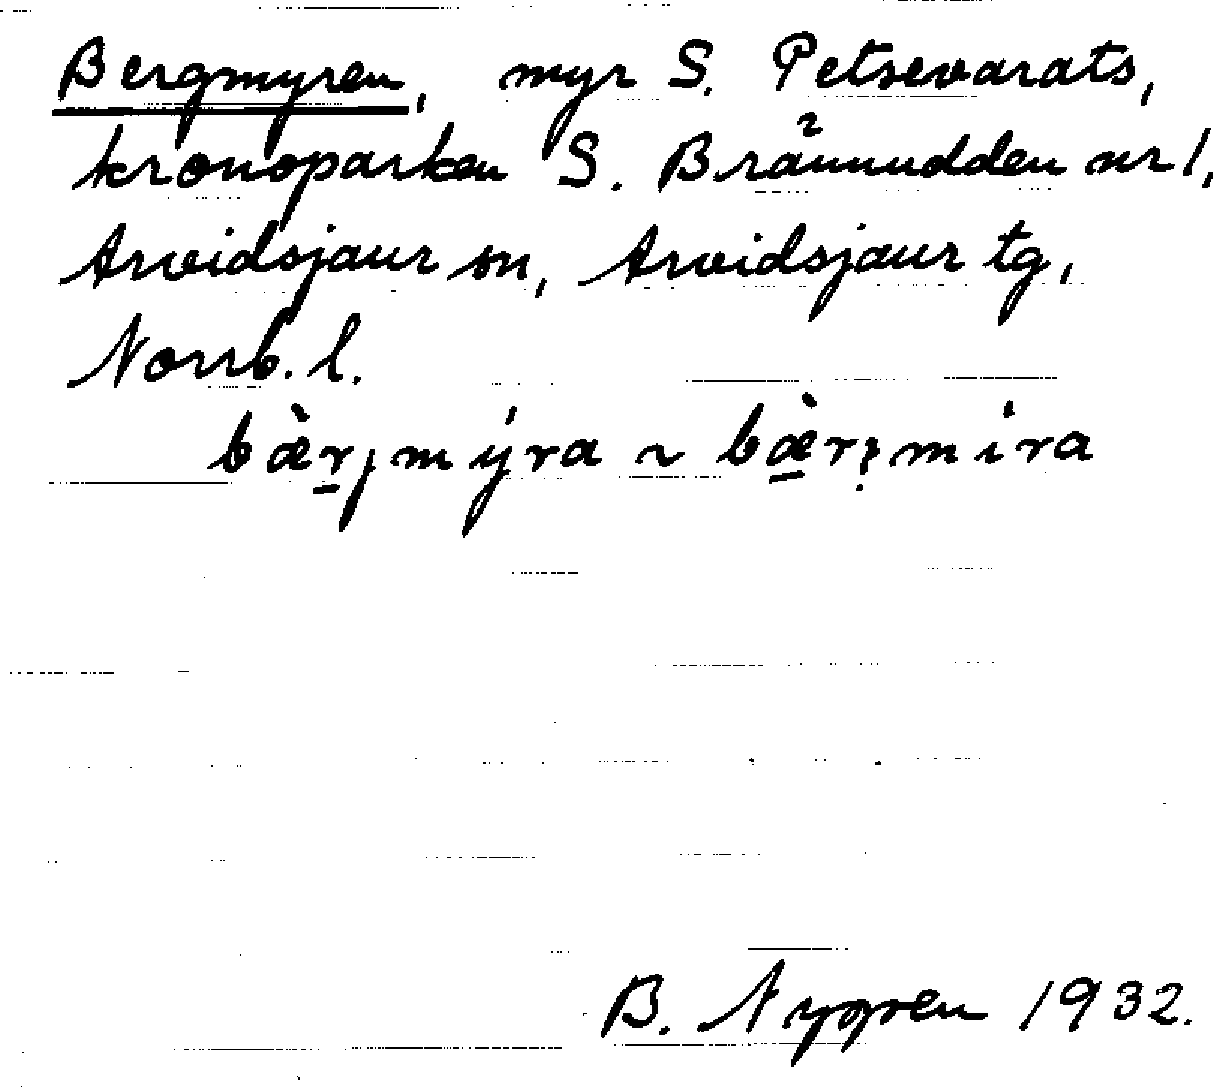 Bergmyren, myr S. Petsevarats,
kronoparken S. Brännudden nr 1,
Arvidsjaur sn, Arvidsjaur tg,
Norrb. l.
B. Nygren 1932.